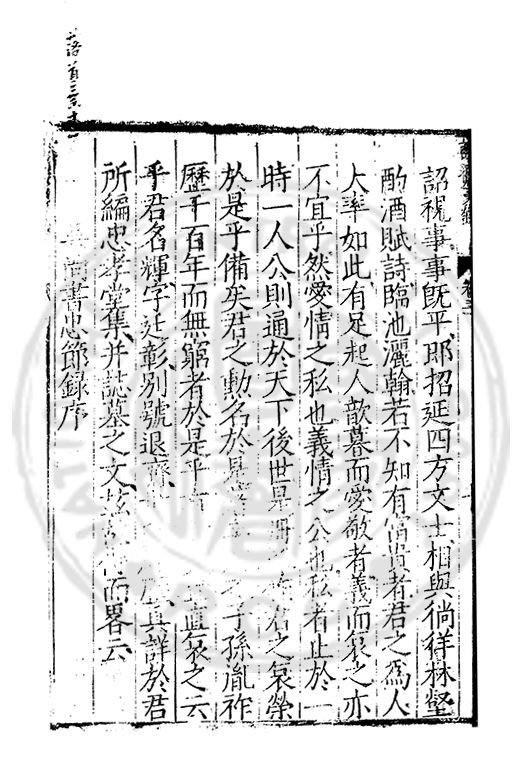 詔視事事既平即招延四方文士相與徜徉林壑
酌酒賦詩臨池灑翰若不知有富貴者君之為人
大率如此有足起人歆慕而愛敬者義而哀之亦
不宜乎然愛情之私也義情之公也私者止於一
時一人公則通於天下後世是冊 君之哀榮
於是乎備矣君之勳名於是 子孫胤祚
歷千百年而無窮者於是乎 哀之云
乎君名輝字廷彰別號退齋 其詳於君
所編忠孝堂集并誌墓之文茲 而畧云
尚書忠節錄序